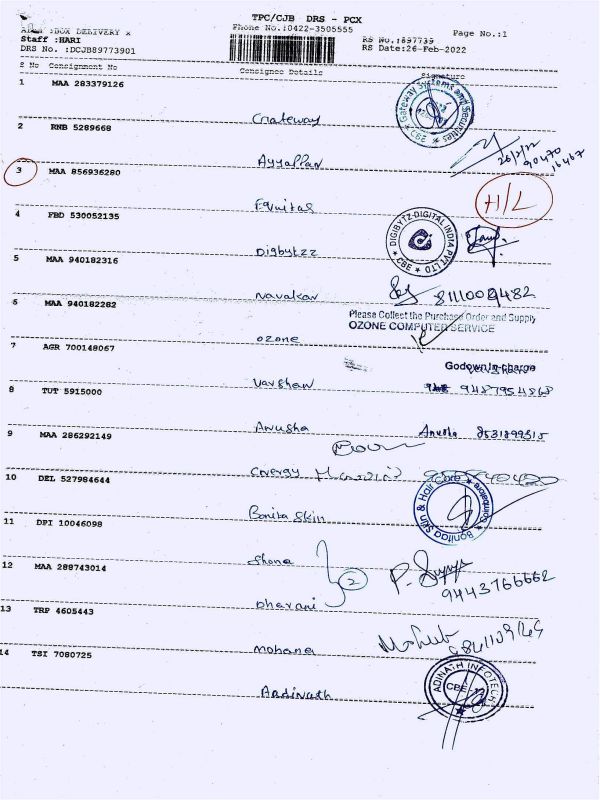 TPC/CJB DRS - PCX
Phone No.:0422-3505555
Page No.:1
Staff :HARI
RS No.:897739
DRS No. :DCJB89773901
RS Date:26-Feb-2022
S No Consignment No Consignee Details Signature
1 MAA 283379126
Gateway
Gateway Systems and Securities CBE
2 RNB 5289668
Ayyappan
26/2/22
90470
16467
3 MAA 856936280
H/L
4 FBD 530052135
Digbytzz
DIGIBYTZ DIGITAL INDIA PVT LTD CBE
5 MAA 940182316
Navakar
6 MAA 940182282
Please Collect the Purchase Order and Supply
OZONE COMPUTER SERVICE
ozone
7 AGR 700148067
Godown In-charge
Varshan
9487954868
8 TUT 5915000
Anusha Anusha 8531899515
9 MAA 286292149
Energy
10 DEL 527984644
Bonita Skin
Bonitaa Skin & Hair Care Coimbatore
11 DPI 10046098
Shana
2
12 MAA 288743014
Dharani
9443766662
13 TRP 4605443
Mohana
14 TSI 7080725
Aadinath
ADINATH INFOTECH CBE